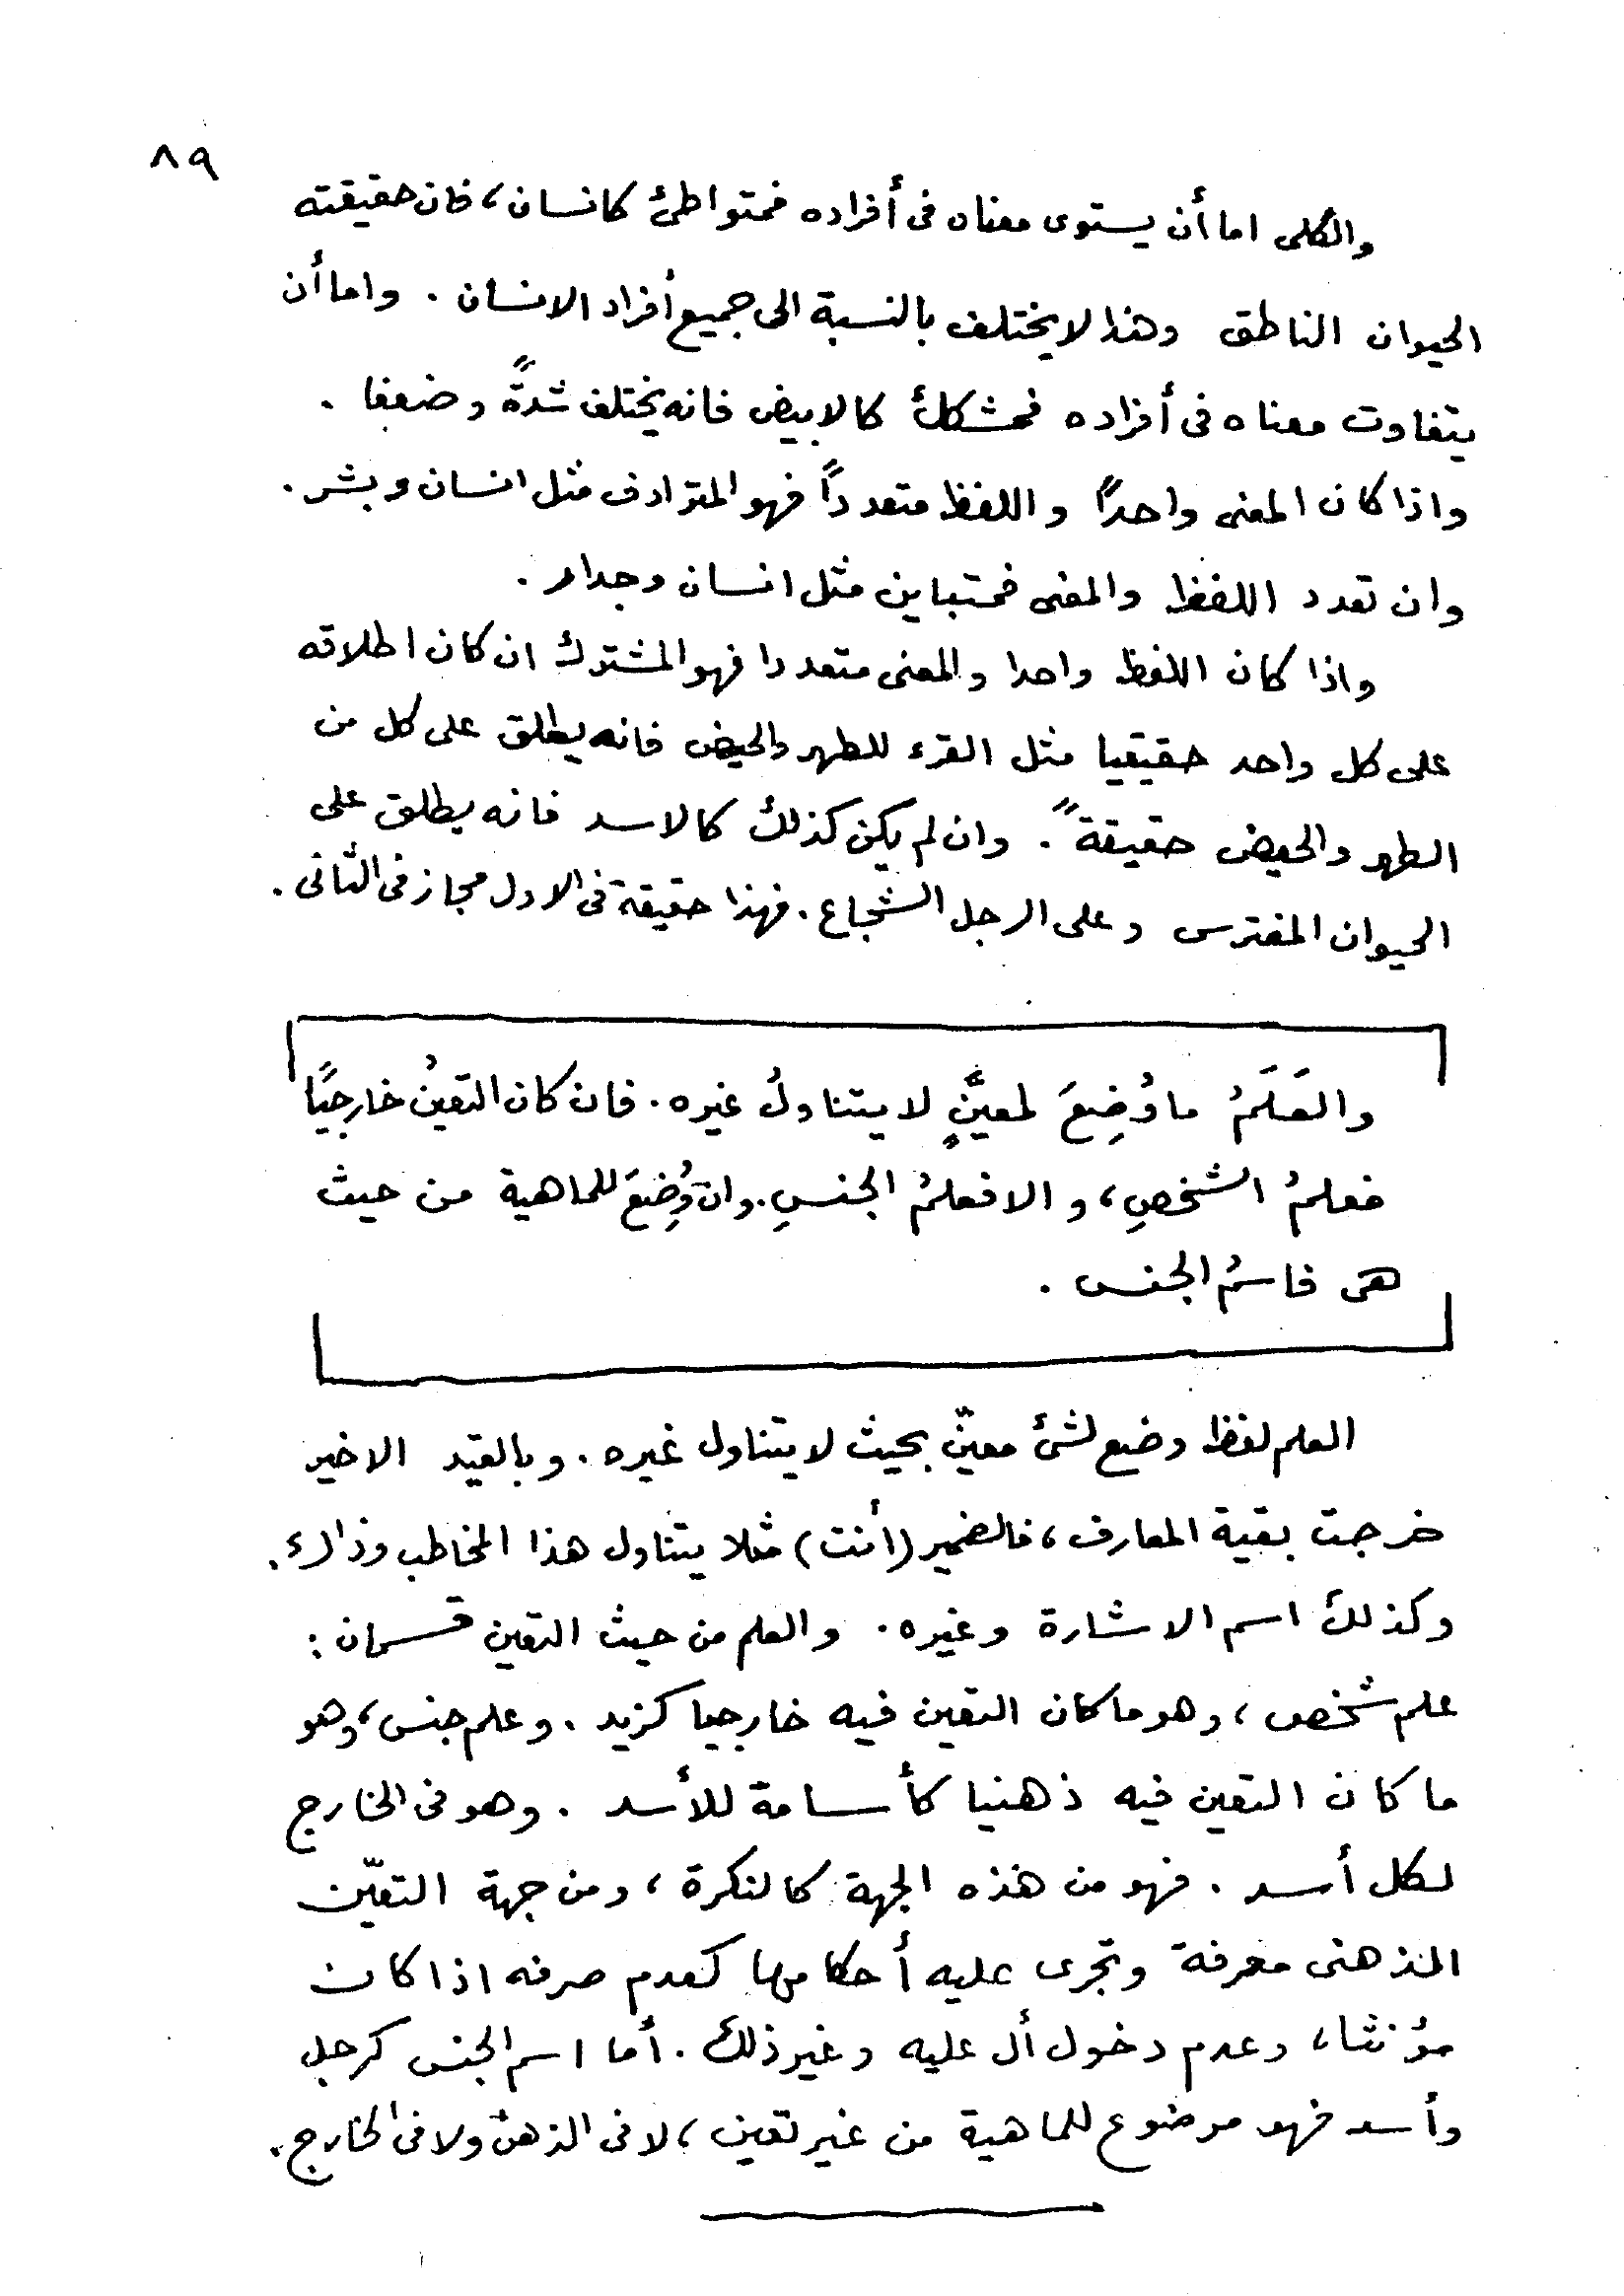 ٨٩
والكلى اما أن يستوى معناه فى أفراده فمتواطئ كانسان، فان حقيقته
الحيوان الناطق وهذا لا يختلف بالنسبة الى جميع أفراد الانسان . واما أن
يتفاوت معناه فى أفراده فمشكك كالابيض فانه يختلف شدةً وضعفا .
واذا كان المعنى واحداً واللفظ متعدداً فهو المترادف مثل انسان وبشر .
وان تعدد اللفظ والمعنى فمتباين مثل انسان وجدار .
واذا كان اللفظ واحدا والمعنى متعددا فهو المشترك ان كان اطلاقه
على كل واحد حقيقيا مثل القرء للطهر والحيض فانه يطلق على كل من
الطهر والحيض حقيقةً . وان لم يكن كذلك كالاسد فانه يطلق على
الحيوان المفترس وعلى الرجل الشجاع . فهذا حقيقة فى الاول مجاز فى الثانى .
والعَلَمُ ما وُضِعَ لمعيَّنٍ لا يتناولُ غيره . فان كان التعينُ خارجيًا
فعلمُ الشخصِ، والا فعلمُ الجنسِ . وان وُضِعَ للماهية من حيث
هى فاسمُ الجنس .
العلم لفظ وضع لشئ معيّن بحيث لا يتناول غيره . وبالقيد الاخير
خرجت بقية المعارف، فالضمير (أنت) مثلا يتناول هذا المخاطب وذاك .
وكذلك اسم الاشارة وغيره . والعلم من حيث التعين قسمان :
علم شخص، وهو ما كان التعين فيه خارجيا كزيد . وعلم جنس، وهو
ما كان التعين فيه ذهنيا كأسامة للأسد . وهو فى الخارج
لكل أسد . فهو من هذه الجهة كالنكرة، ومن جهة التعيّن
الذهنى معرفة وتجرى عليه أحكامها كعدم صرفه اذا كان
مؤنثا، وعدم دخول أل عليه وغير ذلك . أما اسم الجنس كرجل
وأسد فهو موضوع للماهية من غير تعين، لا فى الذهن ولا فى الخارج .